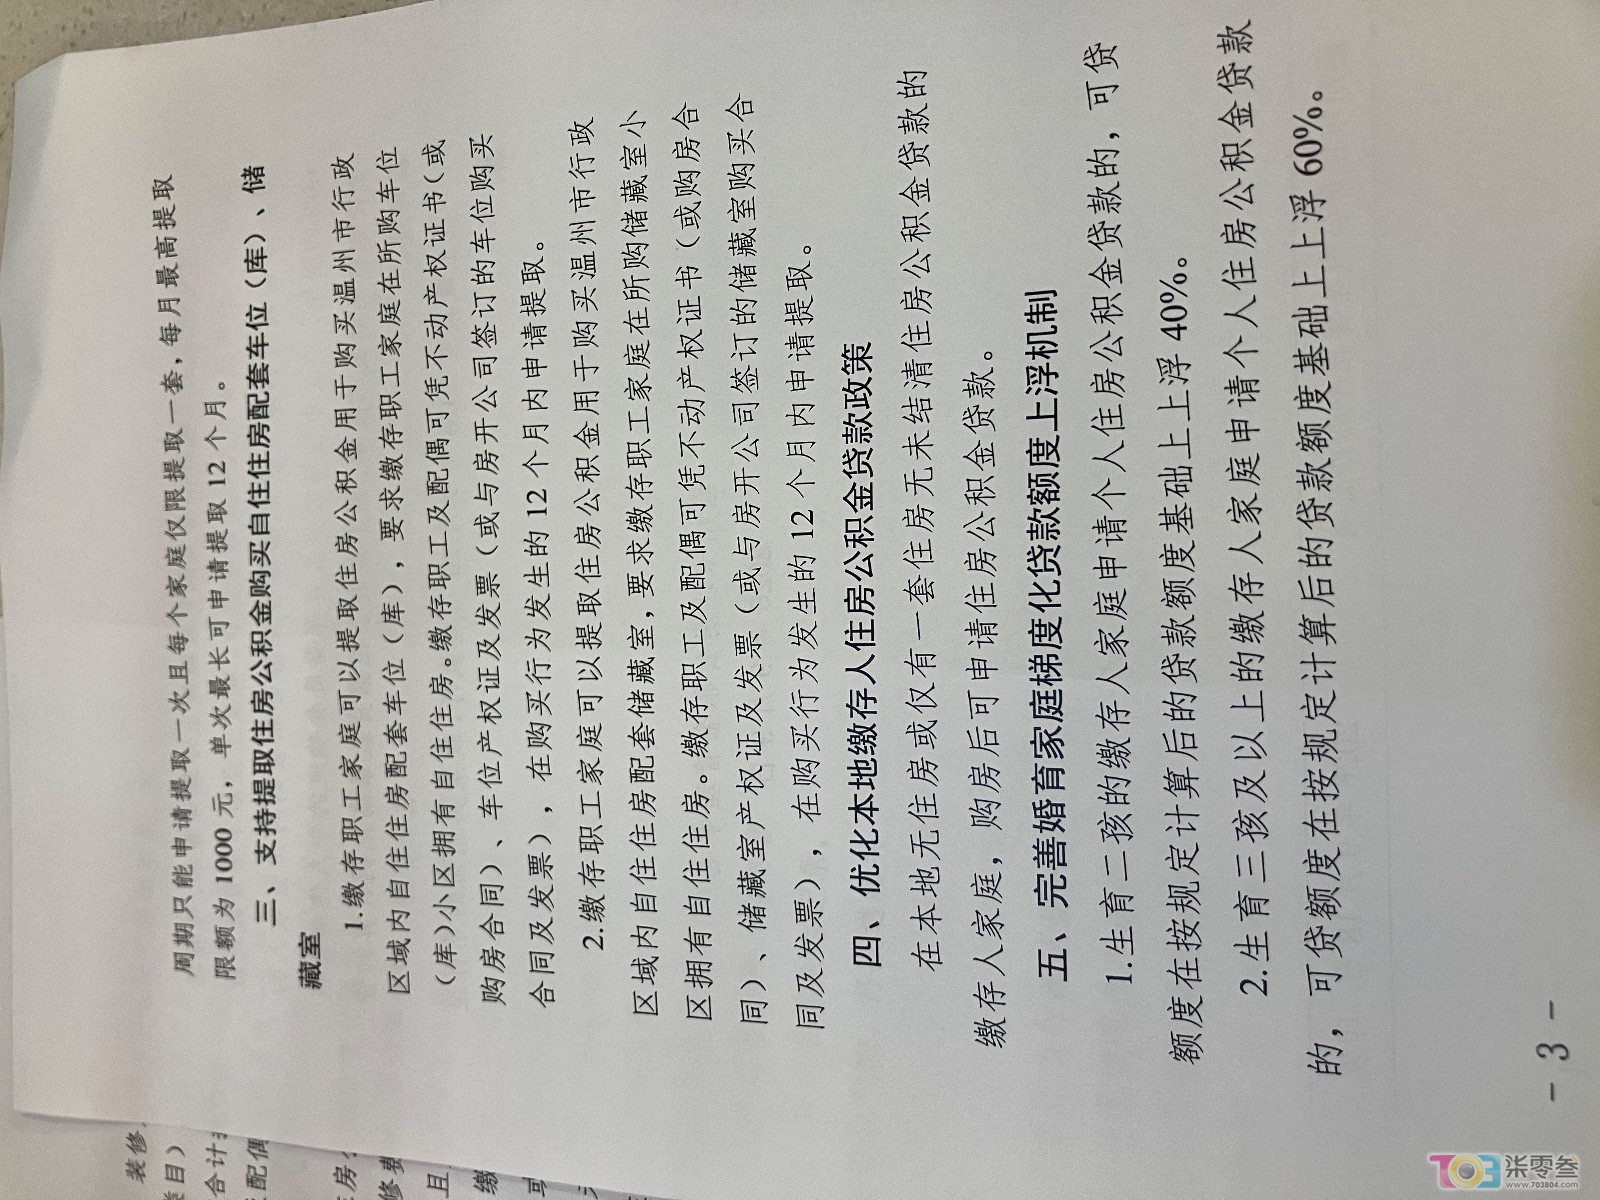 周期只能申请提取一次且每个家庭仅限提取一套，每月最高提取
限额为1000元，单次最长可申请提取12个月。
三、支持提取住房公积金购买自住住房配套车位（库）、储
藏室
1.缴存职工家庭可以提取住房公积金用于购买温州市行政
区域内自住住房配套车位（库），要求缴存职工家庭在所购车位
（库）小区拥有自住住房。缴存职工及配偶可凭不动产权证书（或
购房合同）、车位产权证及发票（或与房开公司签订的车位购买
合同及发票），在购买行为发生的12个月内申请提取。
2.缴存职工家庭可以提取住房公积金用于购买温州市行政
区域内自住住房配套储藏室，要求缴存职工家庭在所购储藏室小
区拥有自住住房。缴存职工及配偶可凭不动产权证书（或购房合
同）、储藏室产权证及发票（或与房开公司签订的储藏室购买合
同及发票），在购买行为发生的12个月内申请提取。
四、优化本地缴存人住房公积金贷款政策
在本地无住房或仅有一套住房无未结清住房公积金贷款的
缴存人家庭，购房后可申请住房公积金贷款。
五、完善婚育家庭梯度化贷款额度上浮机制
1.生育二孩的缴存人家庭申请个人住房公积金贷款的，可贷
额度在按规定计算后的贷款额度基础上上浮40%。
2.生育三孩及以上的缴存人家庭申请个人住房公积金贷款
的，可贷额度在按规定计算后的贷款额度基础上上浮60%。
- 3 -
装修
类目）
合计
配偶
房
修费
且
缴
或
703 柒零叁
www.703804.com